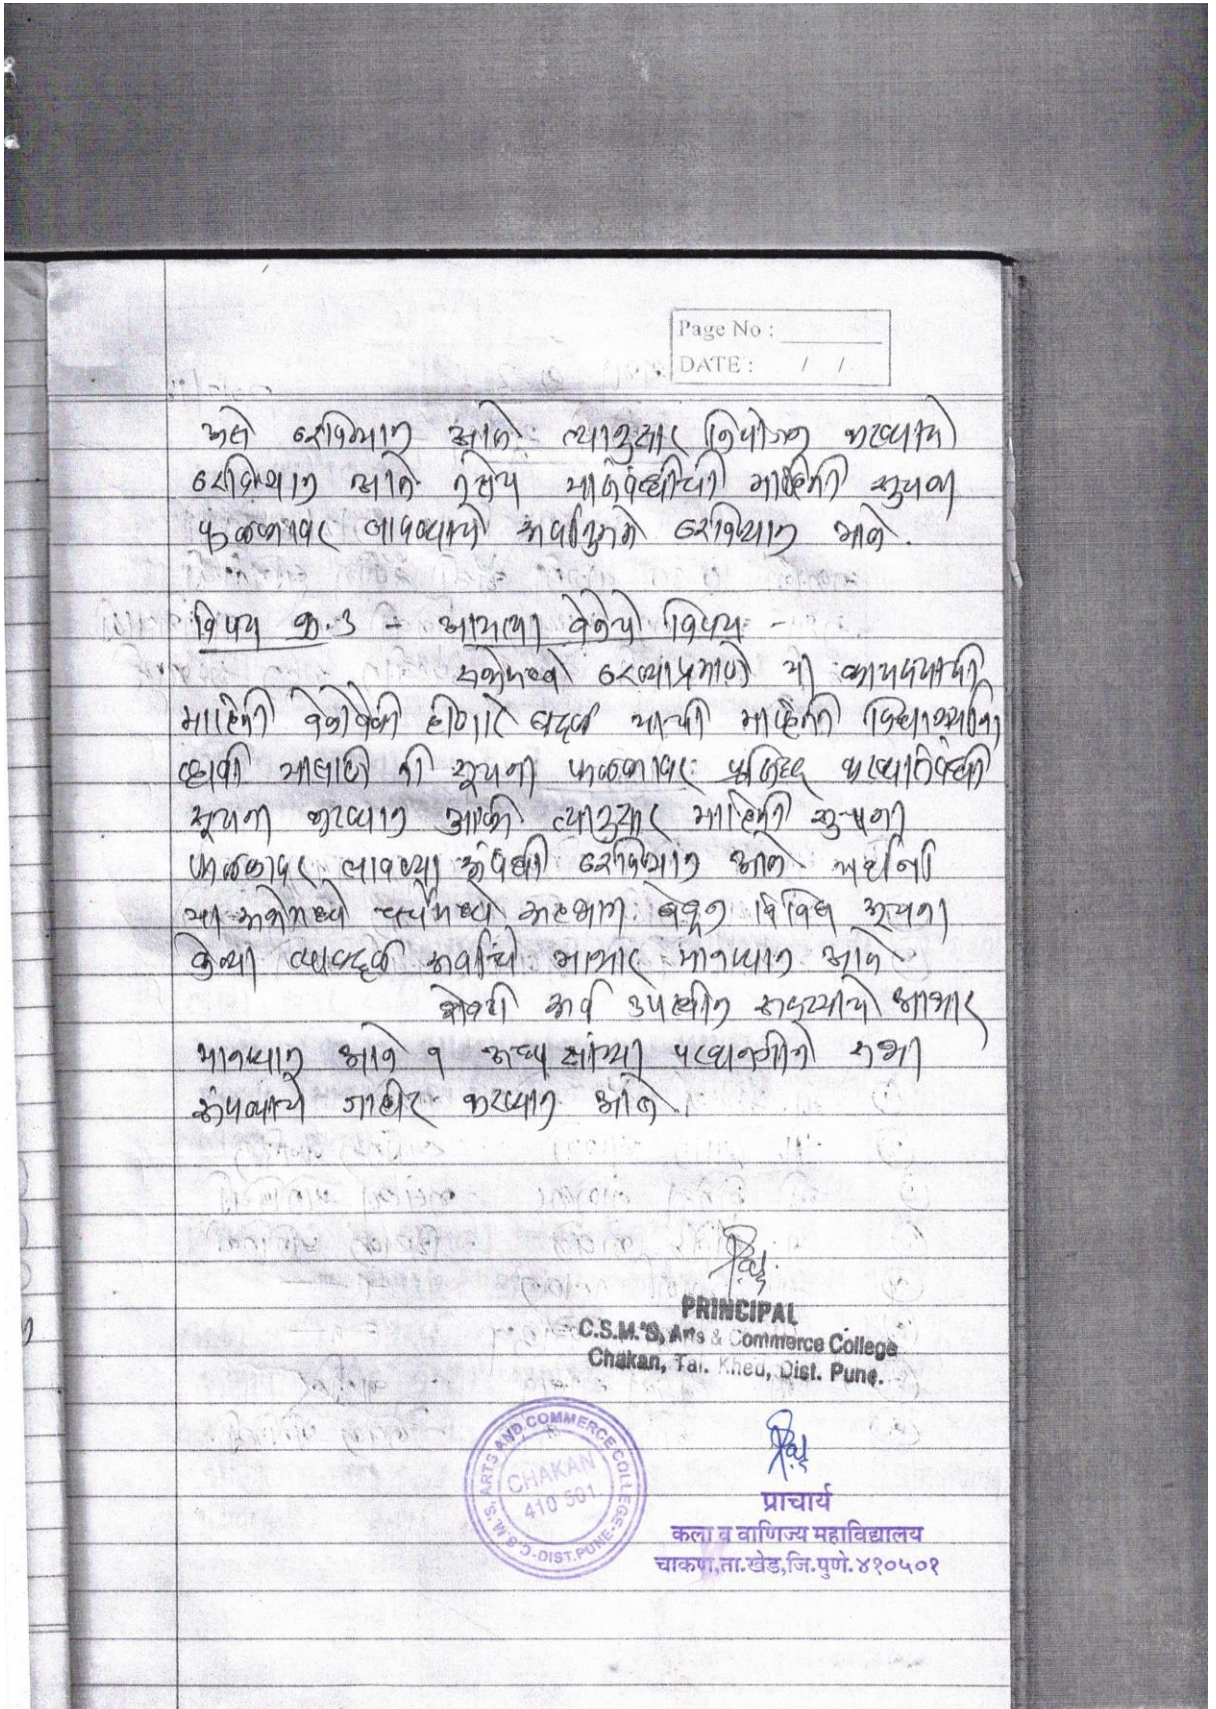 Page No :
DATE : / /
असे ठरविण्यात आले. त्यानुसार नियोजन करण्याचे
ठरविण्यात आले तसेच याबाबतची माहिती सूचना
फळकावर लावण्याचे सर्वानुमते ठरविण्यात आले.
विषय क्र.३ - आयत्या वेळेचे विषय -
ठरल्याप्रमाणे या
माहिती वेळोवेळी होणारे बदल याची माहिती विद्यार्थ्यांना
व्हावी यासाठी ती सूचना फळकावर प्रसिद्ध करण्यासंबंधी
सूचना करण्यात आली त्यानुसार माहिती सूचना
फळकावर लावण्या संबंधी ठरविण्यात आले
या सभेमध्ये चर्चेमध्ये सहभाग घेवून विविध सूचना
केल्या त्याबद्दल सर्वांचे आभार मानण्यात आले
शेवटी सर्व उपस्थित सदस्यांचे आभार
मानण्यात आले व अध्यक्षांच्या परवानगीने सभा
संपल्याचे जाहीर करण्यात आले.
PRINCIPAL
C.S.M.'S, Arts & Commerce College
Chakan, Tal. Khed, Dist. Pune.
C.S.M.'S. ARTS AND COMMERCE COLLEGE
CHAKAN
410 501
DIST.PUNE
प्राचार्य
कला व वाणिज्य महाविद्यालय
चाकण,ता.खेड,जि.पुणे.४१०५०१